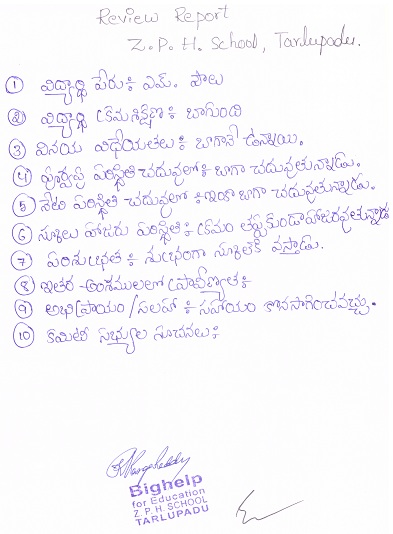 Review Report
Z.P.H. School, Tarlupadu.
1 విద్యార్థి పేరు: ఎమ్. పౌలు
2 విద్యార్థి క్రమశిక్షణ: బాగుంది
3 వినయ విధేయతలు: బాగానే ఉన్నాయి.
4 పూర్వపు పరిస్థితి చదువులో: బాగా చదువుతున్నాడు.
5 నేటి పరిస్థితి చదువులో: ఇంకా బాగా చదువుతున్నాడు.
6 స్కూలు హాజరు పరిస్థితి: క్రమం తప్పకుండా హాజరవుతున్నాడు
7 పరిశుభ్రత: శుభ్రంగా స్కూలుకి వస్తాడు.
8 ఇతర అంశములలో ప్రావీణ్యత:
9 అభిప్రాయం/సలహా: సహాయం కొనసాగించవచ్చు.
10 కమిటీ సభ్యుల సూచనలు:
Bighelp
for Education
Z. P. H. SCHOOL
TARLUPADU